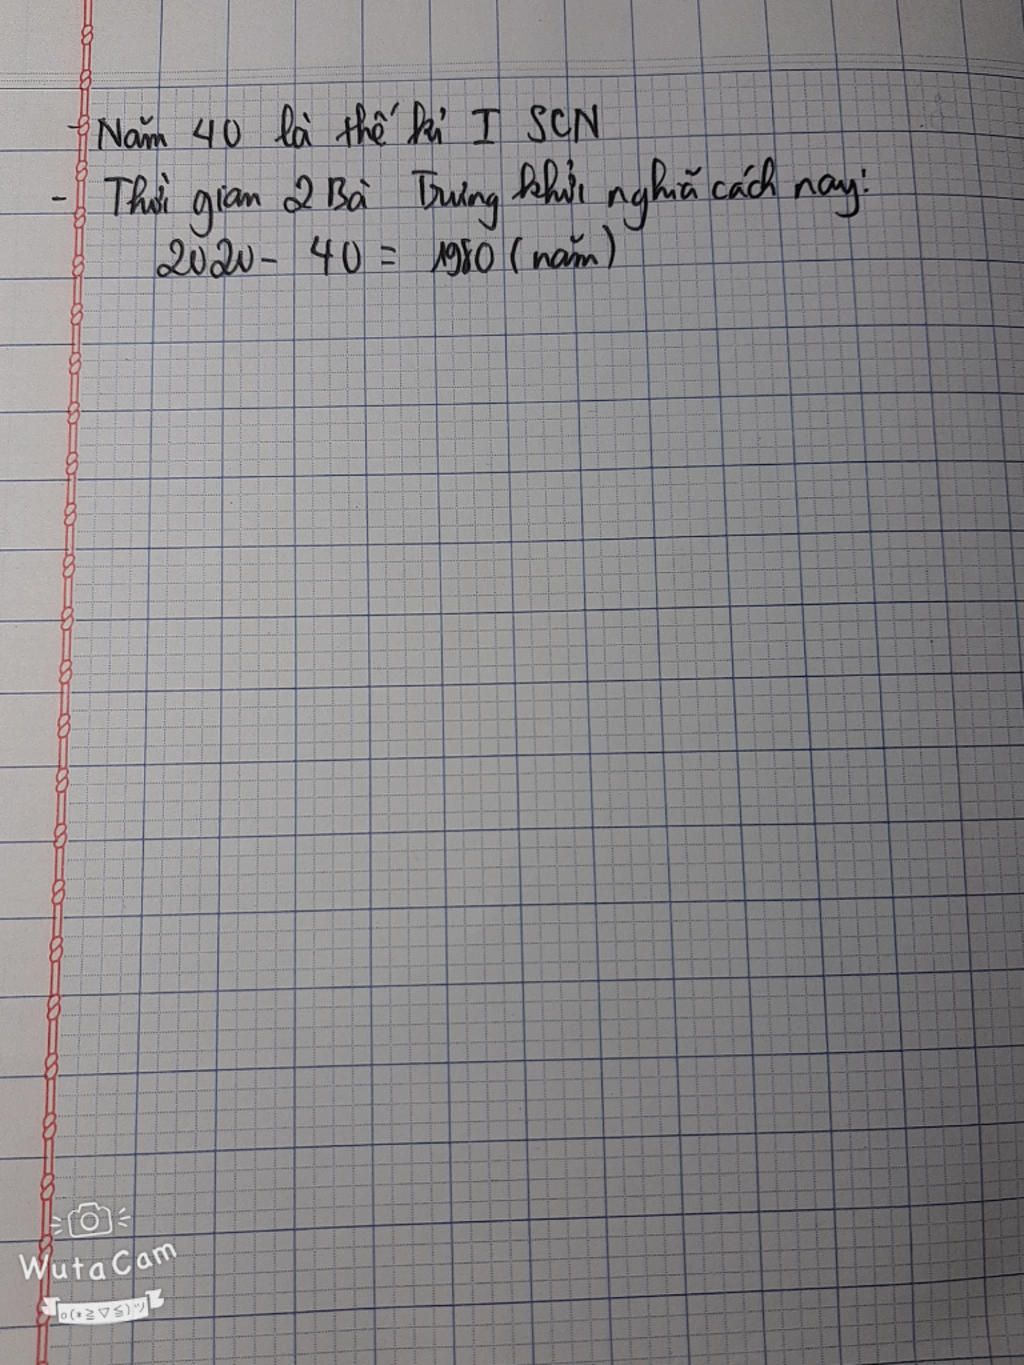 - Năm 40 là thế kỉ I SCN
- Thời gian 2 Bà Trưng khởi nghĩa cách nay:
2020 - 40 = 1980 (năm)
WutaCam
o(*≧▽≦)ツ